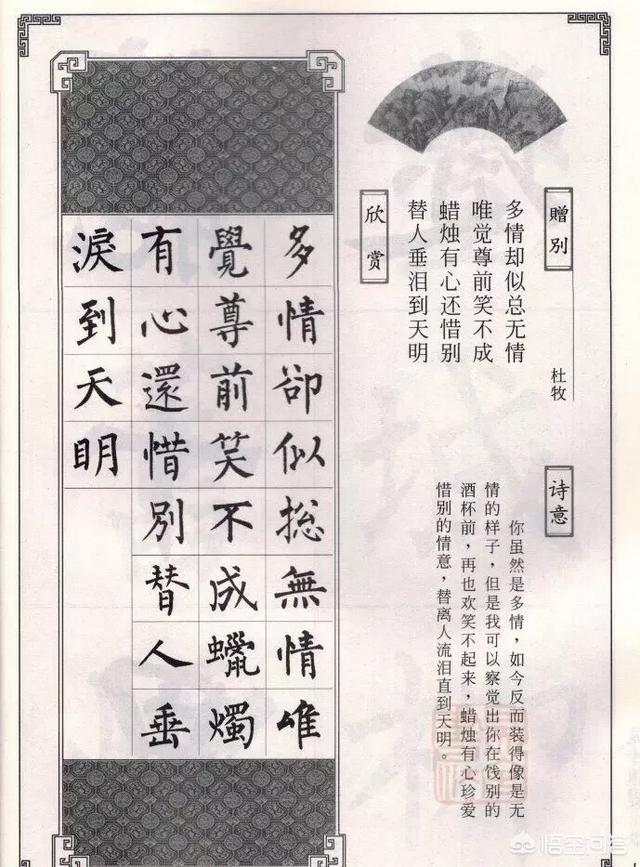 赠别
杜牧
多情却似总无情
唯觉尊前笑不成
蜡烛有心还惜别
替人垂泪到天明
诗意
你虽然是多情，如今反而装得像是无
情的样子，但是我可以察觉出你在饯别的
酒杯前，再也欢笑不起来，蜡烛有心珍爱
惜别的情意，替离人流泪直到天明。
欣赏
多情卻似捴無情唯
覺尊前笑不成蠟燭
有心還惜別替人垂
淚到天明
悟空问答